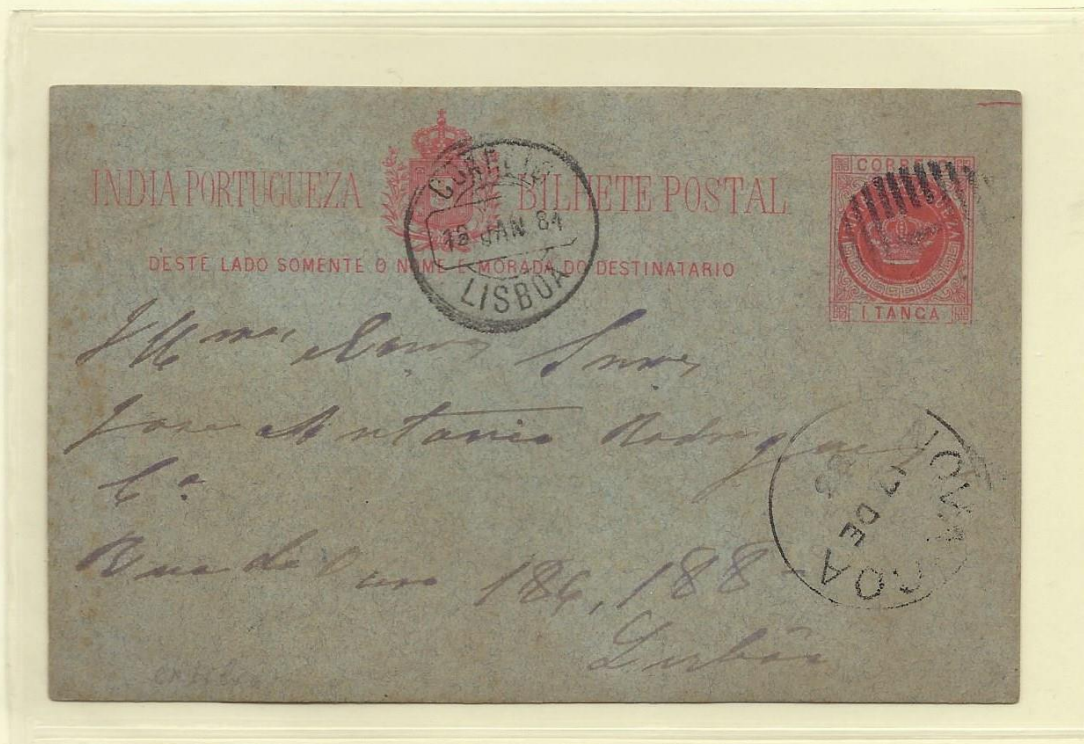 INDIA PORTUGUEZA BILHETE POSTAL
DESTE LADO SOMENTE O NOME E MORADA DO DESTINATARIO
CORREIO
INDIA PORTUGUEZA
1 TANGA
CORREIO
JAN 84
LISBOA
Illmos Exmos Snres
Jose Antonio Rodrigues
Ca
Rua do Ouro 186, 188
Lisboa
NOVA GOA
17 DE